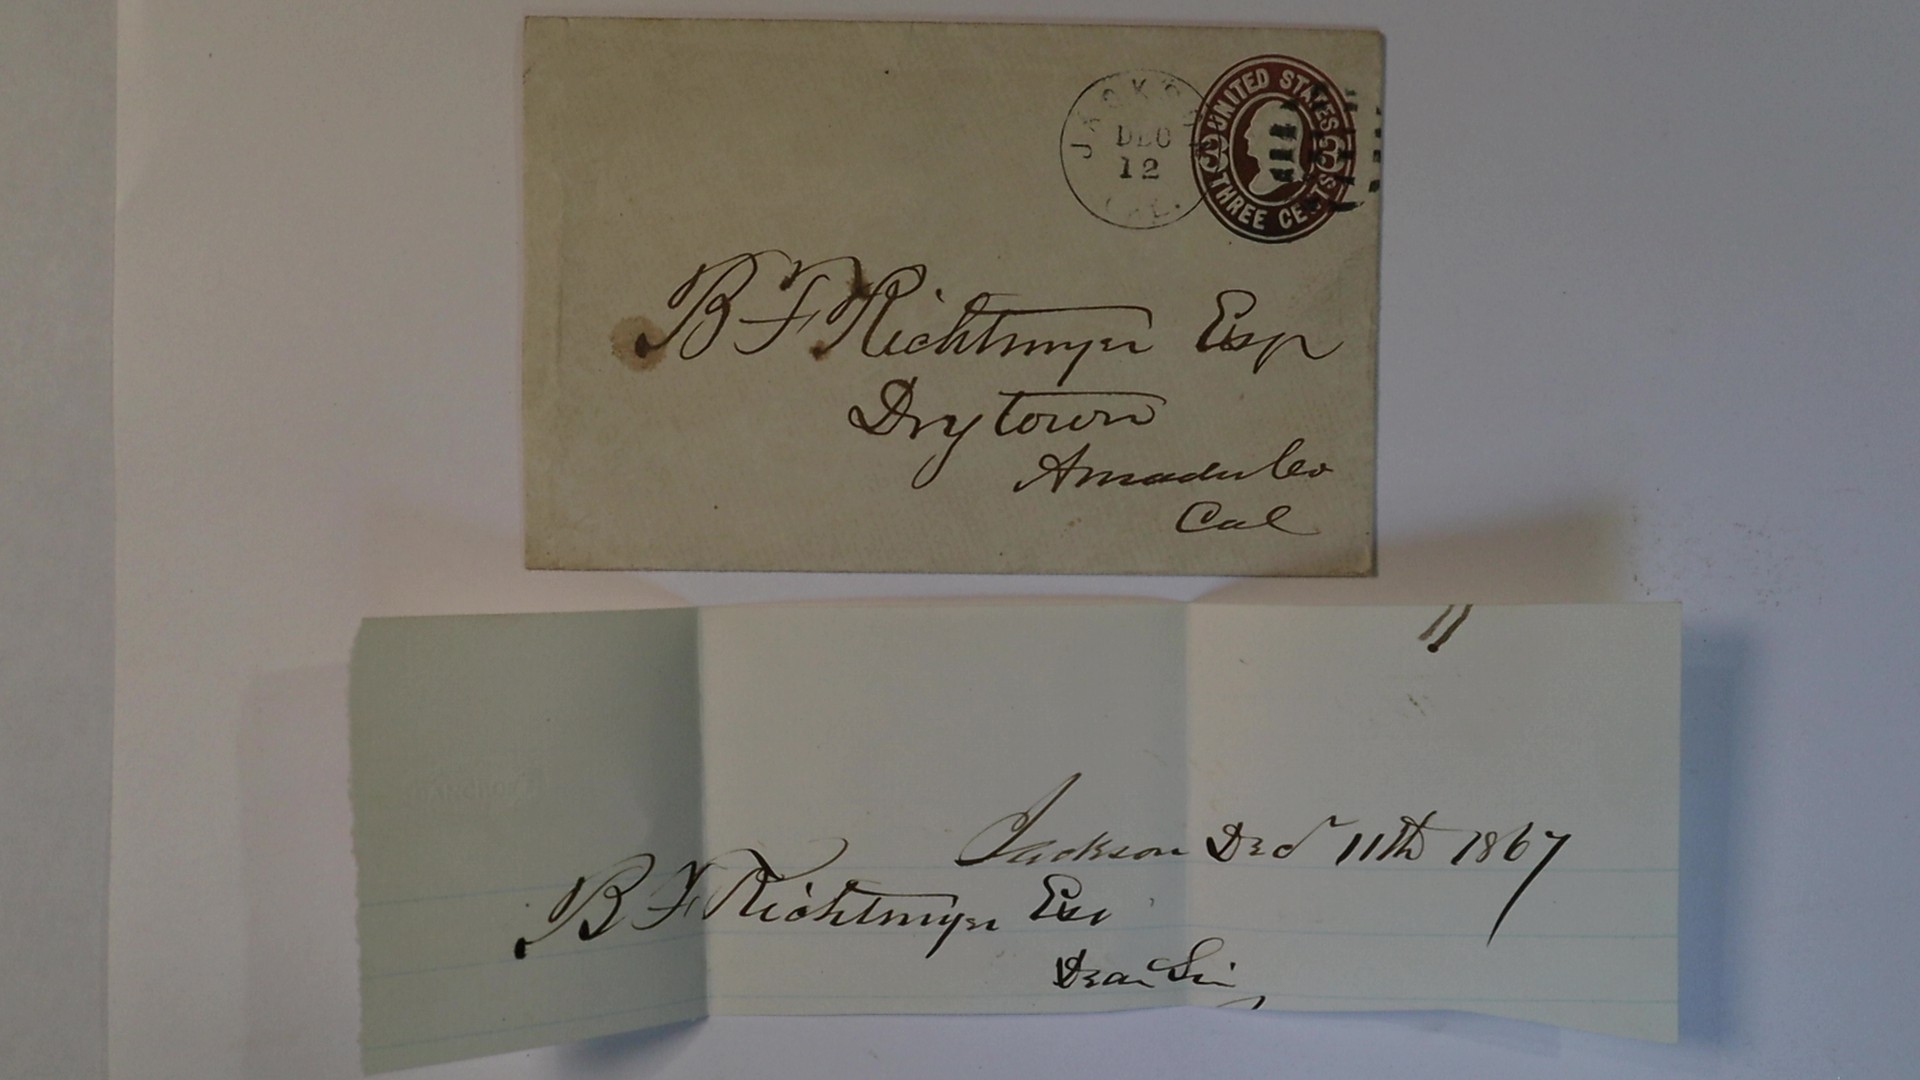 JACKSON
DEC
12
CAL.
UNITED STATES
THREE CENTS
3 3
B F Richtmyer Esq
Drytown
Amador Co
Cal
Jackson Decr 11th 1867
B F Richtmyer Esq
Dear Sir